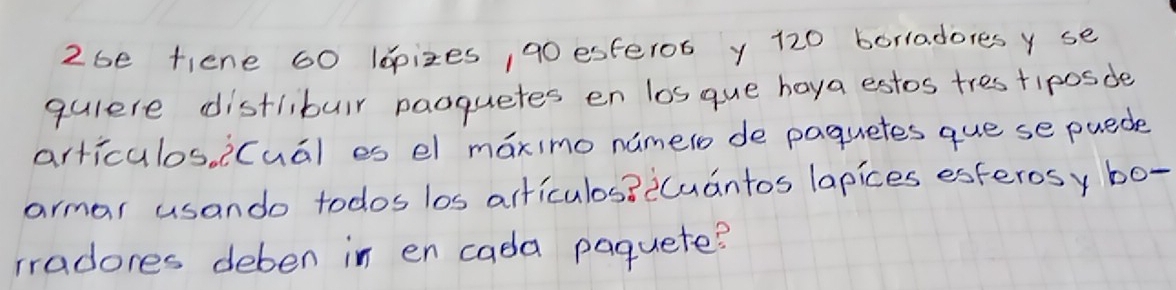 2 se tiene 60 lópizes, 90 esferos y 120 borradores y se
quiere distribuir paoquetes en los que haya estos tres tipos de
artículos. ¿Cuál es el máximo número de paquetes que se puede
armar usando todos los artículos? ¿Cuántos lapíces esferos y bo-
rradores deben ir en cada paquete?